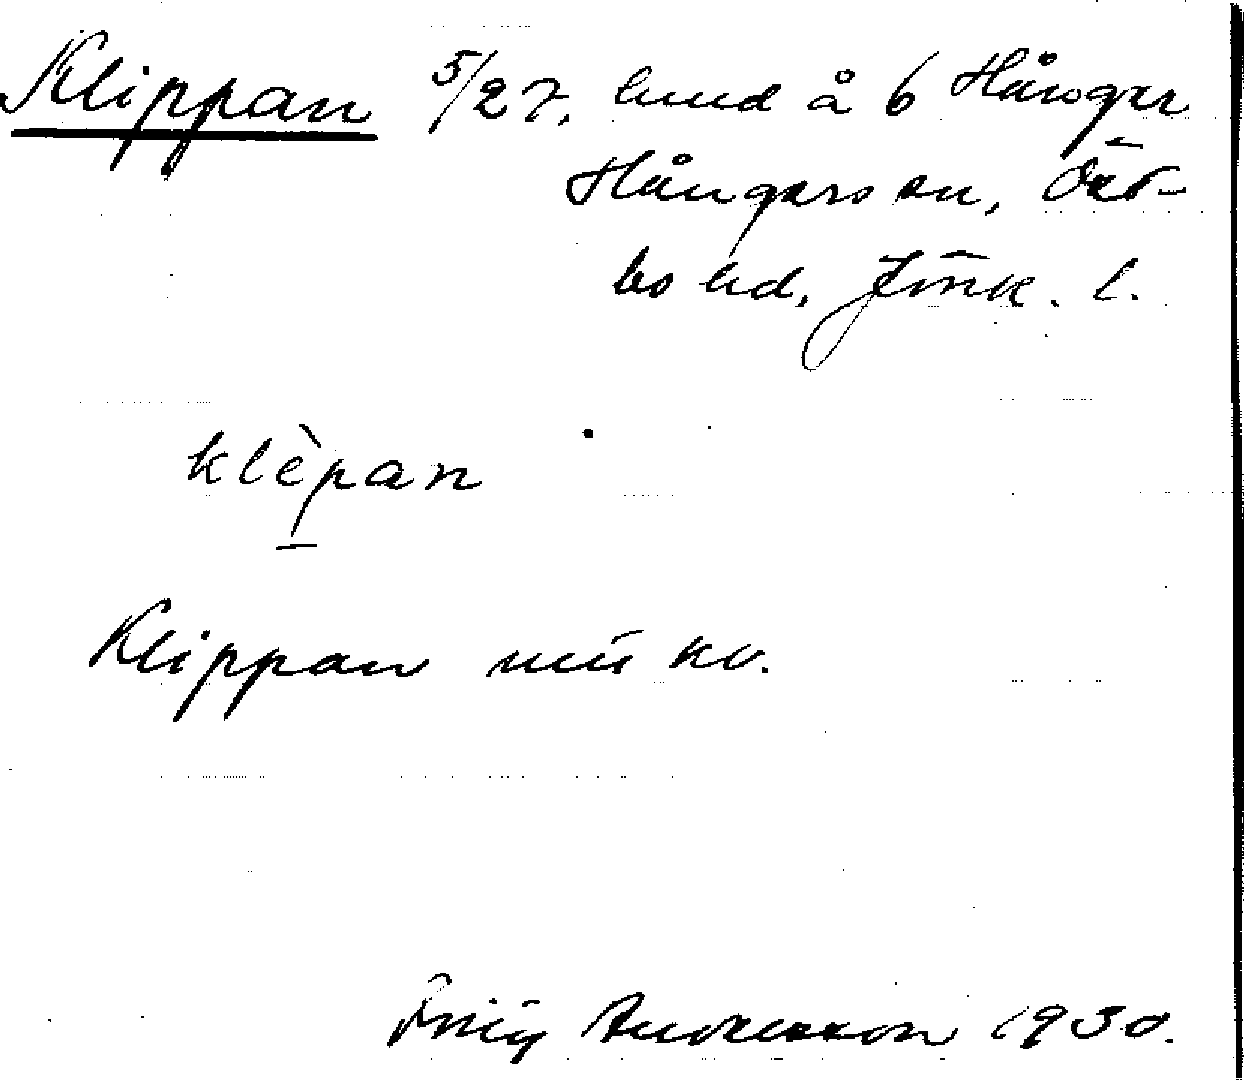 Klippan 5/27, lund å 6 Hånger
Hångers sn, Öst-
bo hd, Jönk. l.
klèpan
Klippan mtl kv.
Andersson 1930.